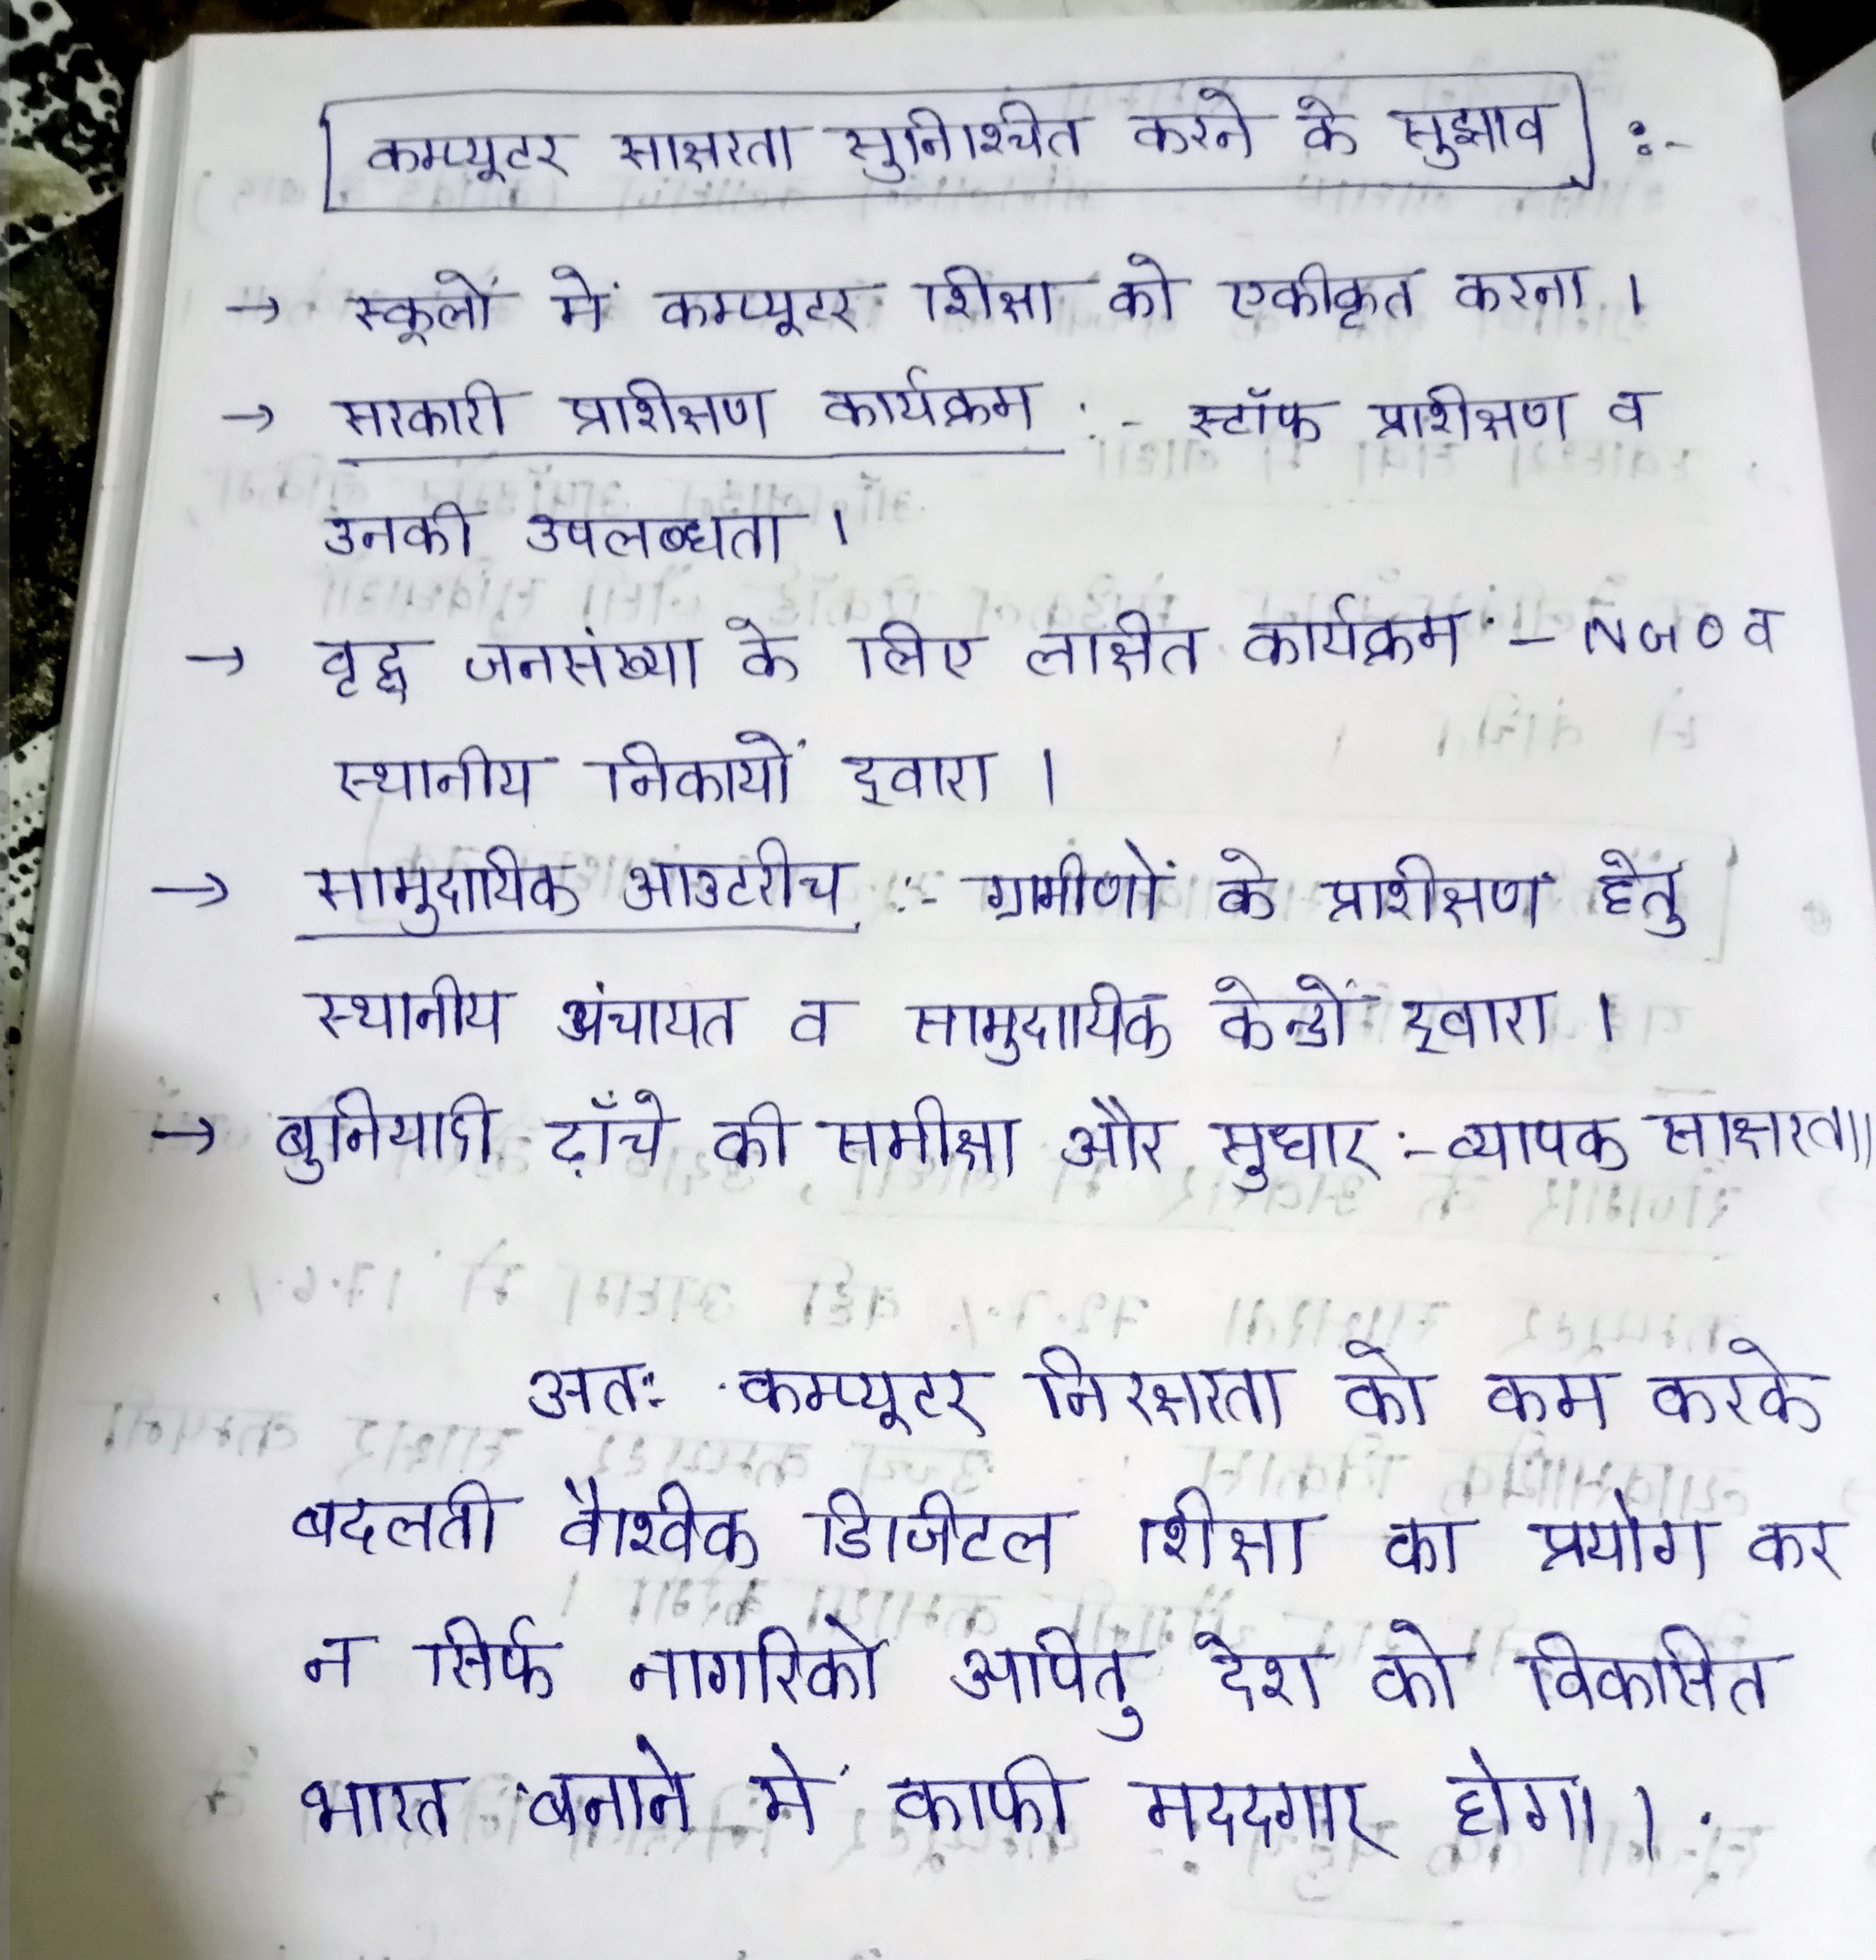 कम्प्यूटर साक्षरता सुनिश्चित करने के सुझाव :-
→ स्कूलों में कम्प्यूटर शिक्षा को एकीकृत करना ।
→ सरकारी प्रशिक्षण कार्यक्रम :- स्टॉफ प्रशिक्षण व
उनकी उपलब्धता ।
→ वृद्ध जनसंख्या के लिए लक्षित कार्यक्रम :- NGO व
स्थानीय निकायों द्वारा ।
→ सामुदायिक आउटरीच :- ग्रामीणों के प्रशिक्षण हेतु
स्थानीय पंचायत व सामुदायिक केन्द्रों द्वारा ।
→ बुनियादी ढ़ाँचे की समीक्षा और सुधार :- व्यापक साक्षरता॥
अतः कम्प्यूटर निरक्षरता को कम करके
बदलती वैश्विक डिजिटल शिक्षा का प्रयोग कर
न सिर्फ नागरिको अपितु देश को विकसित
भारत बनाने में काफी मददगार होगा ।